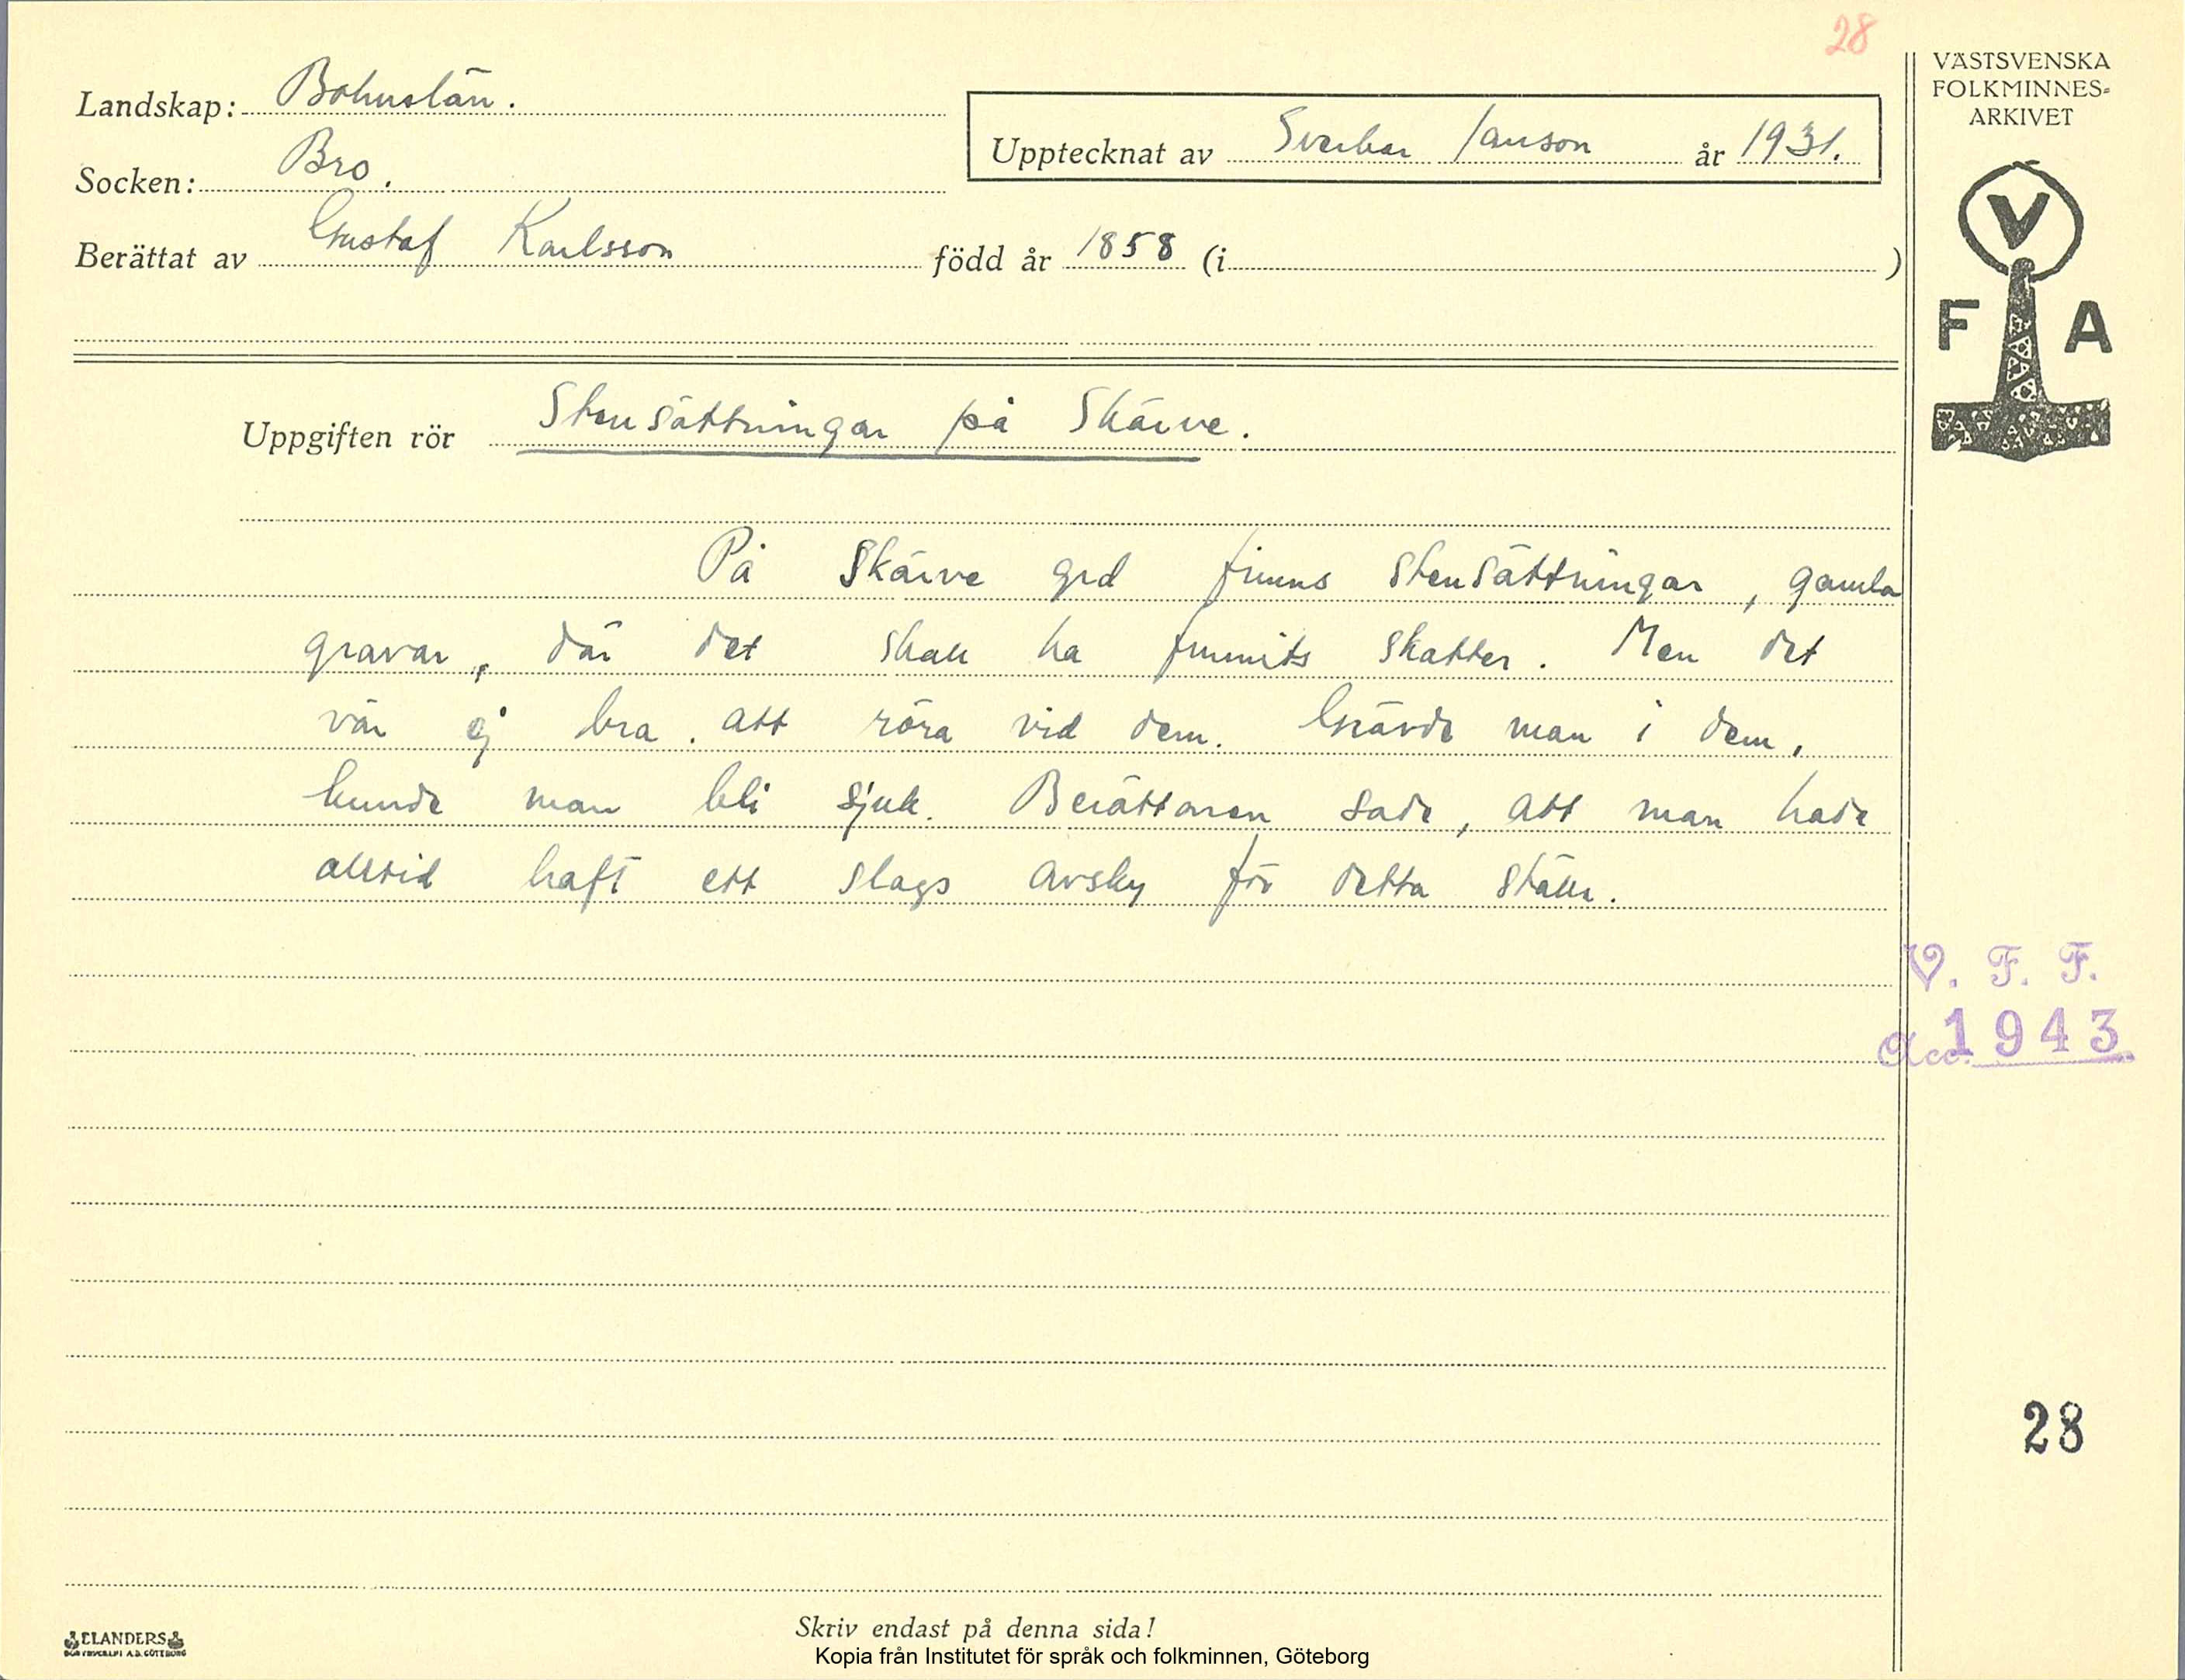 28
VÄSTSVENSKA
FOLKMINNES-
ARKIVET
Landskap: Bohuslän.
Upptecknat av Sverker Janson år 1931.
Socken: Bro.
Berättat av Gustaf Karlsson född år 1858 (i )
V
F A
Uppgiften rör Stensättningar på Skärve.
På Skärve grd finns stensättningar, gamla
gravar, där det skall ha funnits skatter. Men det
var ej bra att röra vid dem. Grävde man i dem,
kunde man bli sjuk. Berättaren sade, att man hade
alltid haft ett slags avsky för detta ställe.
V. F. F.
Acc. 1943.
28
Skriv endast på denna sida!
ELANDERS
BOKTRYCKERI A.B. GÖTEBORG
Kopia från Institutet för språk och folkminnen, Göteborg